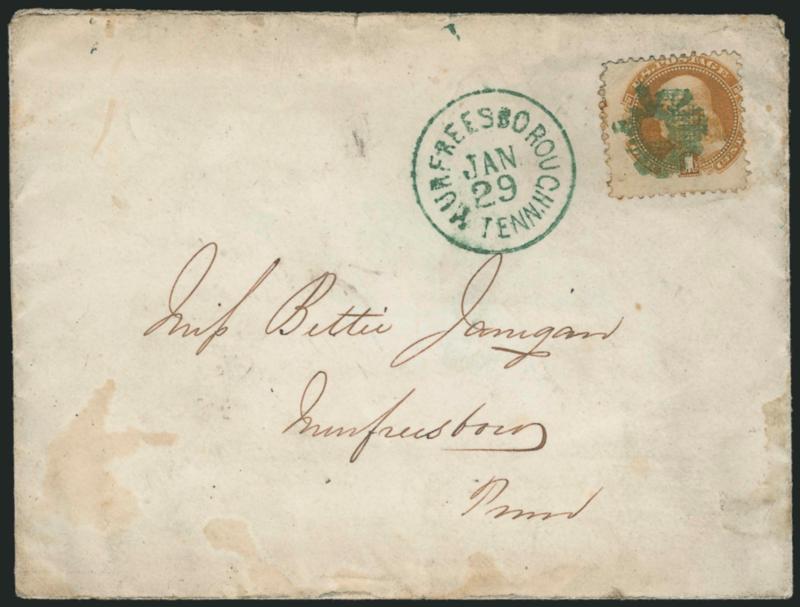 U.S. POSTAGE
1
MURFREESBOROUGH TENN.
JAN
29
Miss Bettie Jarnigan
Murfreesboro
Tenn